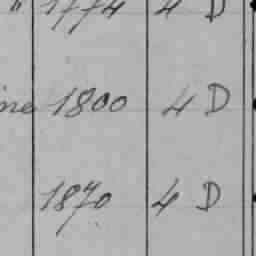 " 1774 4 D
ine 1800 4 D
1870 4 D